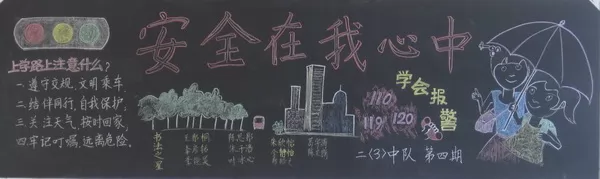 安全在我心中
上学路上注意什么?
一遵守交规,文明乘车.
二.结伴同行,自我保护.
三.关注天气,按时回家.
四牢记叮嘱,远离危险.
学会报警
110
119
120
书法之星
二〈3〉中队 第四期